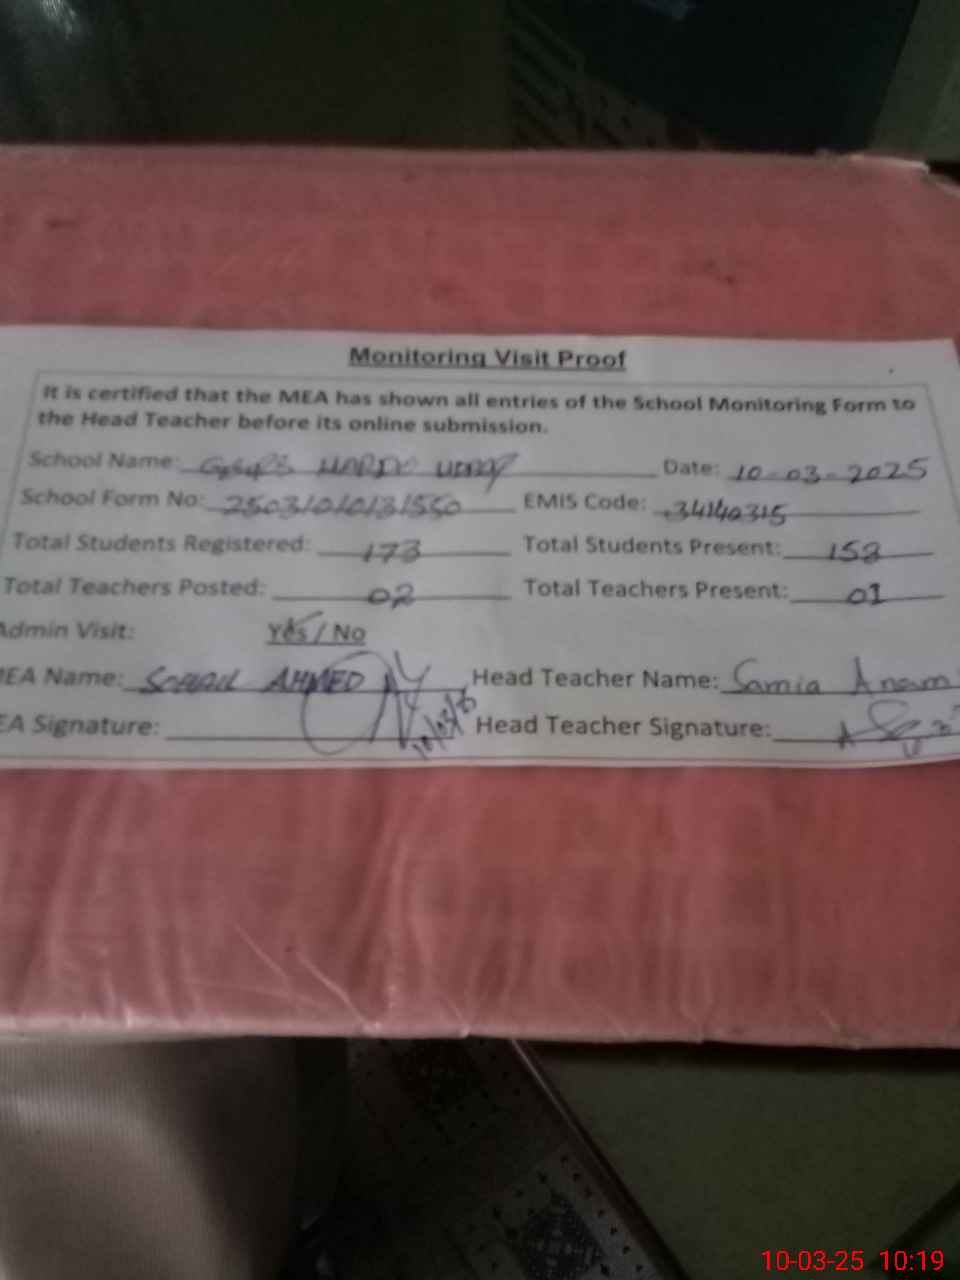 Monitoring Visit Proof
It is certified that the MEA has shown all entries of the School Monitoring Form to
the Head Teacher before its online submission.
School Name: HARDO Date: 10-03-2025
School Form No: EMIS Code: 34140315
Total Students Registered: 173 Total Students Present: 153
Total Teachers Posted: 02 Total Teachers Present: 01
Admin Visit: Yes / No
MEA Name: SOHAIL AHMED Head Teacher Name: Samia Anam
EA Signature: Head Teacher Signature:
10-03-25 10:19